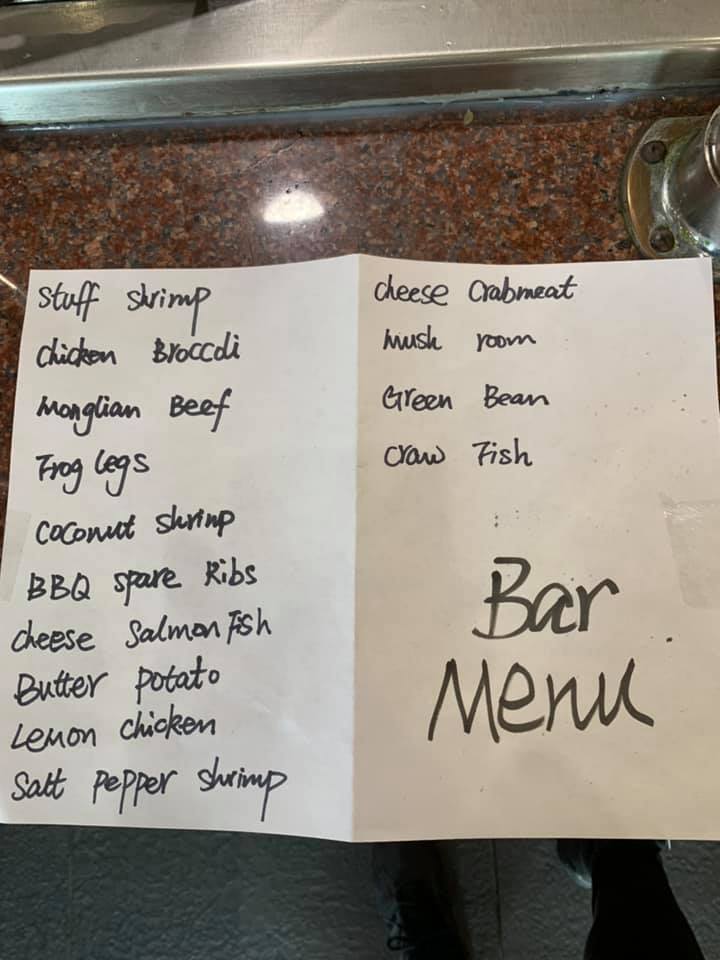 Stuff shrimp
Chicken Broccoli
Monglian Beef
Frog legs
Coconut shrimp
BBQ spare Ribs
cheese Salmon Fish
Butter potato
Lemon chicken
Salt pepper shrimp
cheese Crabmeat
Mush room
Green Bean
Craw Fish
Bar
Menu